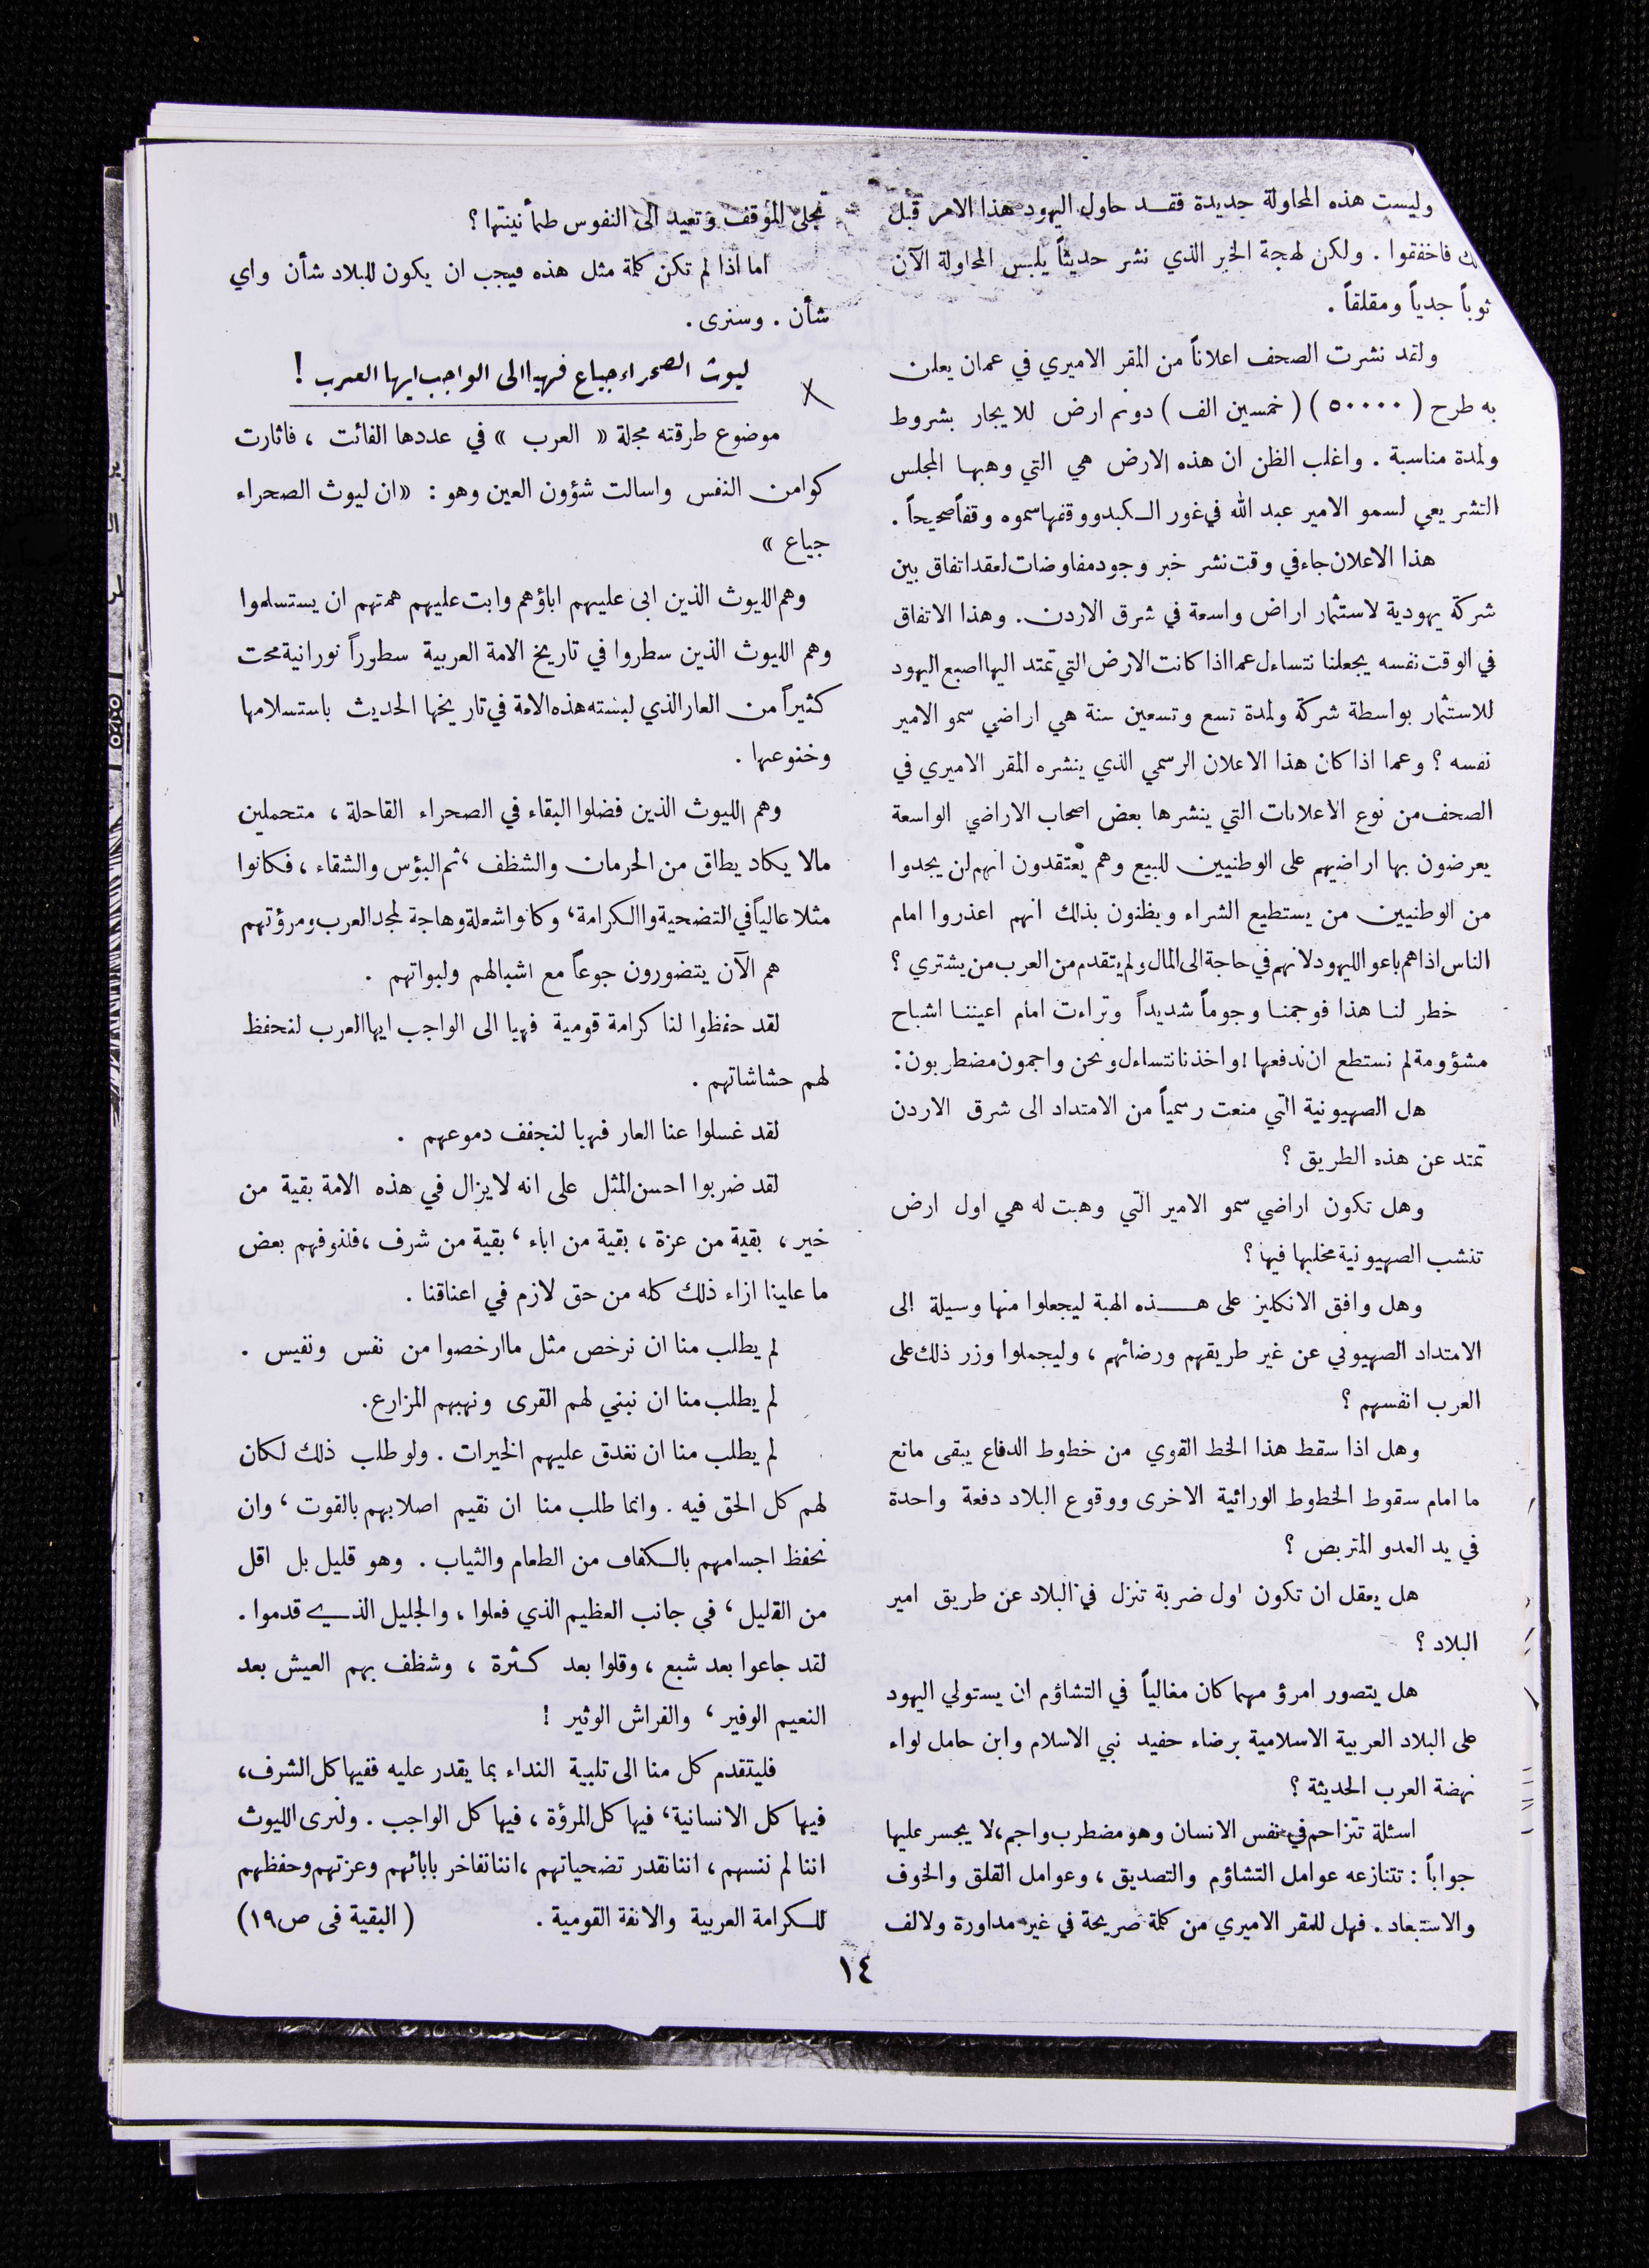 وليست هذه المحاولة جديدة فقد حاول اليهود هذا الامر قبل
فاخفقوا . ولكن لهجة الخبر الذي نشر حديثاً يلبس المحاولة الآن
ثوباً جدياً ومقلقاً .
ولقد نشرت الصحف اعلاناً من المقر الاميري في عمان يعلن
به طرح ( ٥٠٠٠٠ ) ( خمسين الف ) دونم ارض للايجار بشروط
ولمدة مناسبة . واغلب الظن ان هذه الارض هي التي وهبها المجلس
التشريعي لسمو الامير عبد الله في غور الكبد ووقفها سموه وقفاً صحيحاً .
هذا الاعلان جاء في وقت نشر خبر وجود مفاوضات لعقد اتفاق بين
شركة يهودية لاستثمار اراض واسعة في شرق الاردن . وهذا الاتفاق
في الوقت نفسه يجعلنا نتساءل عما اذا كانت الارض التي تمتد اليها اصبع اليهود
للاستثمار بواسطة شركة ولمدة تسع وتسعين سنة هي اراضي سمو الامير
نفسه ؟ وعما اذا كان هذا الاعلان الرسمي الذي ينشره المقر الاميري في
الصحف من نوع الاعلانات التي ينشرها بعض اصحاب الاراضي الواسعة
يعرضون بها اراضيهم على الوطنيين للبيع وهم يعتقدون انهم لن يجدوا
من الوطنيين من يستطيع الشراء ويظنون بذلك انهم اعذروا امام
الناس اذا هم باعوا لليهود لانهم في حاجة الى المال ولم يتقدم من العرب من يشتري ؟
خطر لنا هذا فوجمنا وجوماً شديداً وتراءت امام اعيننا اشباح
مشؤومة لم نستطع ان ندفعها ! واخذنا نتساءل ونحن واجمون مضطربون :
هل الصهيونية التي منعت رسمياً من الامتداد الى شرق الاردن
تمتد عن هذه الطريق ؟
وهل تكون اراضي سمو الامير التي وهبت له هي اول ارض
تنشب الصهيونية مخلبها فيها ؟
وهل وافق الانكليز على هذه الهبة ليجعلوا منها وسيلة الى
الامتداد الصهيوني عن غير طريقهم ورضائهم ، وليجعلوا وزر ذلك على
العرب انفسهم ؟
وهل اذا سقط هذا الخط القوي من خطوط الدفاع يبقى مانع
ما امام سقوط الخطوط الورائية الاخرى ووقوع البلاد دفعة واحدة
في يد العدو المتربص ؟
هل يعقل ان تكون اول ضربة تنزل في البلاد عن طريق امير
البلاد ؟
هل يتصور امرؤ مهما كان مغالياً في التشاؤم ان يستولي اليهود
على البلاد العربية الاسلامية برضاء حفيد نبي الاسلام وابن حامل لواء
نهضة العرب الحديثة ؟
اسئلة تتزاحم في نفس الانسان وهو مضطرب واجم ، لا يجسر عليها
جواباً : تتنازعه عوامل التشاؤم والتصديق ، وعوامل القلق والخوف
والاستبعاد . فهل للمقر الاميري من كلمة صريحة في غير مداورة ولا لف
تجلي الموقف وتعيد الى النفوس طمأنينتها ؟
اما اذا لم تكن كلمة مثل هذه فيجب ان يكون للبلاد شأن واي
شأن . وسنرى .
ليوث الصحراء جياع فهيا الى الواجب ايها العرب !
موضوع طرقته مجلة « العرب » في عددها الفائت ، فاثارت
كوامن النفس واسالت شؤون العين وهو : « ان ليوث الصحراء
جياع »
وهم الليوث الذين ابى عليهم اباؤهم وابت عليهم همتهم ان يستسلموا
وهم الليوث الذين سطروا في تاريخ الامة العربية سطوراً نورانية محت
كثيراً من العار الذي لبسته هذه الامة في تاريخها الحديث باستسلامها
وخنوعها .
وهم الليوث الذين فضلوا البقاء في الصحراء القاحلة ، متحملين
مالا يكاد يطاق من الحرمان والشظف ، ثم البؤس والشقاء ، فكانوا
مثلا عالياً في التضحية والكرامة ، وكانوا شعلة وهاجة لمجد العرب ومرؤتهم
هم الآن يتضورون جوعاً مع اشبالهم ولبواتهم .
لقد حفظوا لنا كرامة قومية فهيا الى الواجب ايها العرب لنحفظ
لهم حشاشاتهم .
لقد غسلوا عنا العار فهيا لنجفف دموعهم .
لقد ضربوا احسن المثل على انه لا يزال في هذه الامة بقية من
خير ، بقية من عزة ، بقية من اباء ، بقية من شرف ، فلنوفهم بعض
ما علينا ازاء ذلك كله من حق لازم في اعناقنا .
لم يطلب منا ان نرخص مثل ما ارخصوا من نفس ونفيس .
لم يطلب منا ان نبني لهم القرى ونهبهم المزارع .
لم يطلب منا ان نغدق عليهم الخيرات . ولو طلب ذلك لكان
لهم كل الحق فيه . وانما طلب منا ان نقيم اصلابهم بالقوت ، وان
نحفظ اجسامهم بالكفاف من الطعام والثياب . وهو قليل بل اقل
من القليل ، في جانب العظيم الذي فعلوا ، والجليل الذي قدموا .
لقد جاعوا بعد شبع ، وقلوا بعد كثرة ، وشظف بهم العيش بعد
النعيم الوفير ، والفراش الوثير !
فليتقدم كل منا الى تلبية النداء بما يقدر عليه ففيها كل الشرف ،
فيها كل الانسانية ، فيها كل المرؤة ، فيها كل الواجب . ولنرى الليوث
اننا لم ننسهم ، اننا نقدر تضحياتهم ، اننا نفاخر بابائهم وعزتهم وحفظهم
للكرامة العربية والانفة القومية . ( البقية في ص ١٩ )
١٤